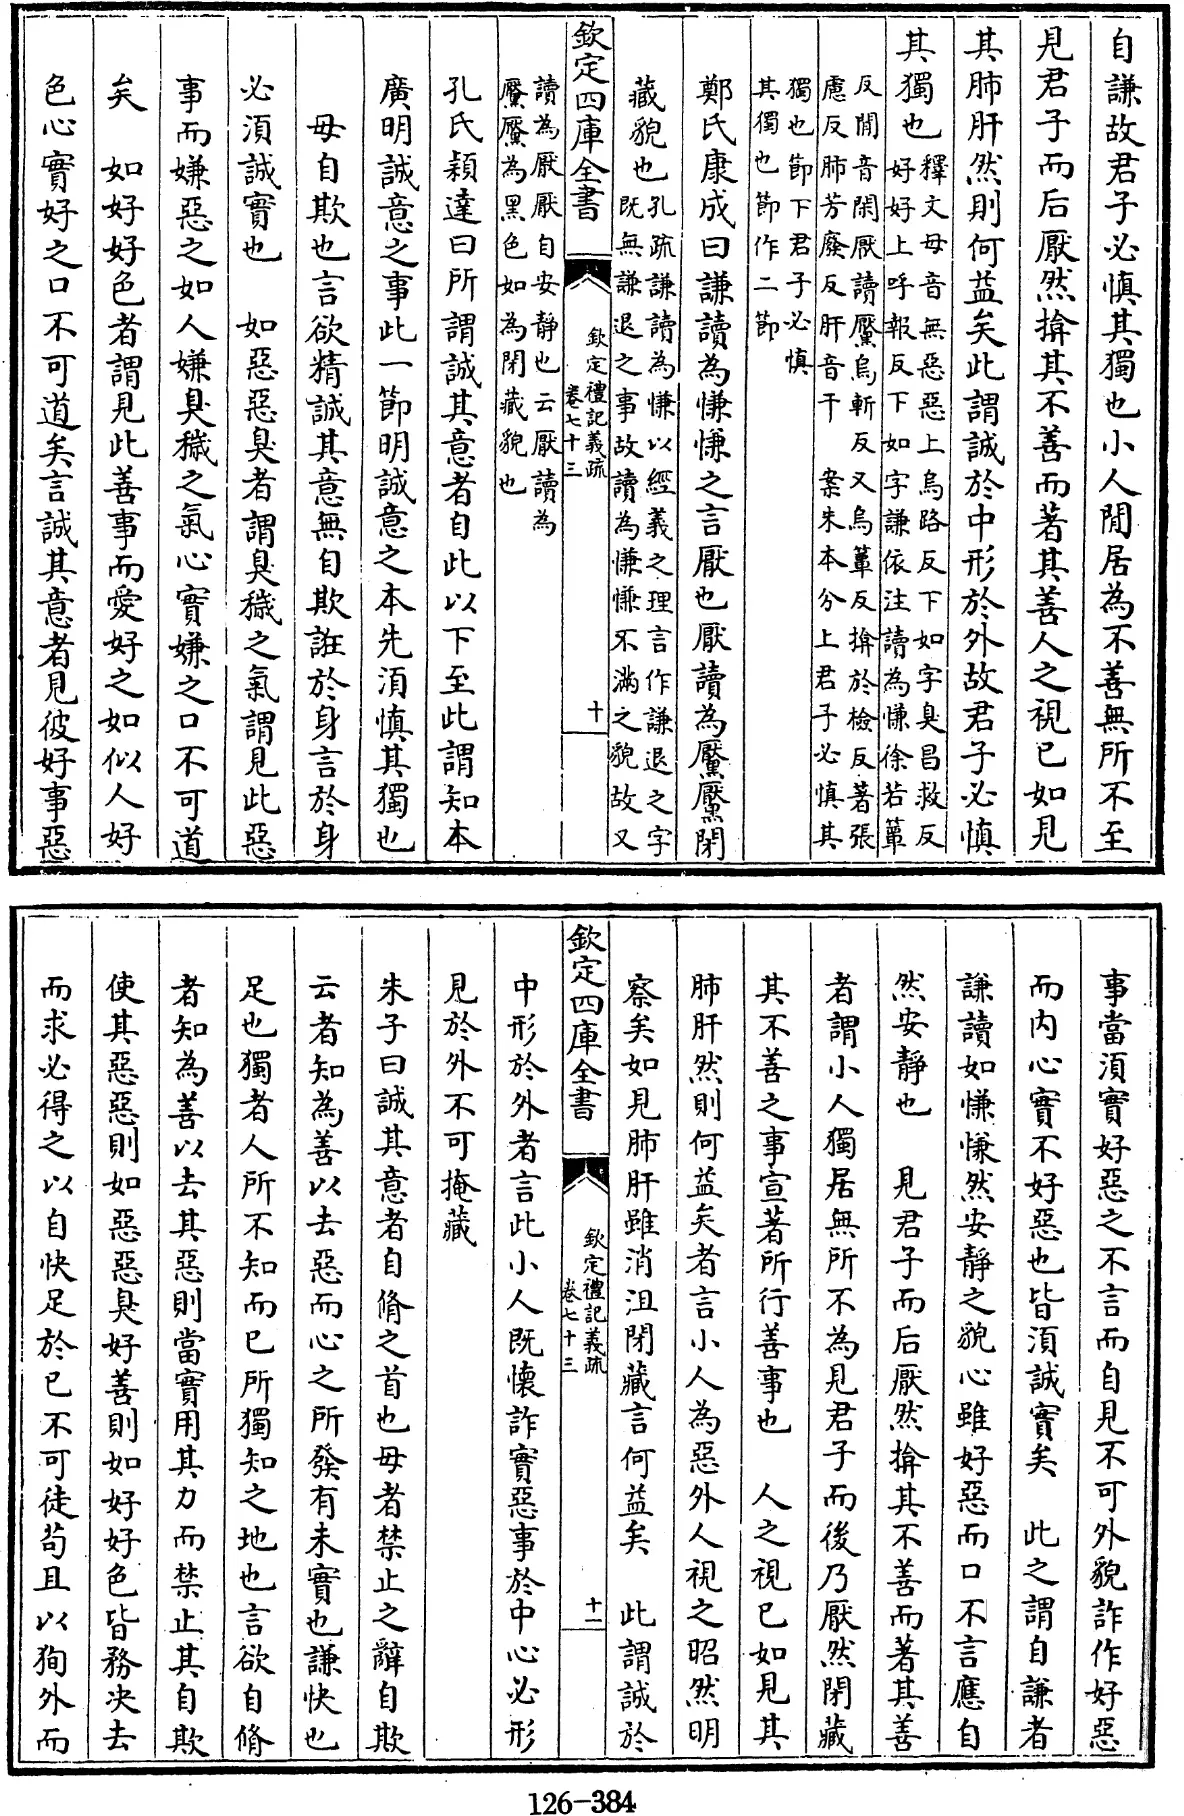 自謙故君子必慎其獨也小人閒居為不善無所不至
見君子而后厭然揜其不善而著其善人之視己如見
其肺肝然則何益矣此謂誠於中形於外故君子必慎
其獨也
釋文毋音無惡惡上烏路反下如字臭昌救反
好好上呼報反下如字謙依注讀為慊徐若簟
反閒音閑厭讀黶烏斬反又烏簟反揜於檢反著張
慮反肺芳廢反肝音干 案朱本分上君子必慎其
獨也節下君子必慎
其獨也節作二節
鄭氏康成曰謙讀為慊慊之言厭也厭讀為黶黶閉
藏貌也
孔疏謙讀為慊以經義之理言作謙退之字
既無謙退之事故讀為慊慊不滿之貌故又
欽定四庫全書
欽定禮記義疏
卷七十三
十
讀為厭厭自安靜也云厭讀為
黶黶為黑色如為閉藏貌也
孔氏穎達曰所謂誠其意者自此以下至此謂知本
廣明誠意之事此一節明誠意之本先須慎其獨也
毋自欺也言欲精誠其意無自欺誑於身言於身
必須誠實也 如惡惡臭者謂臭穢之氣謂見此惡
事而嫌惡之如人嫌臭穢之氣心實嫌之口不可道
矣 如好好色者謂見此善事而愛好之如似人好
色心實好之口不可道矣言誠其意者見彼好事惡
事當須實好惡之不言而自見不可外貌詐作好惡
而內心實不好惡也皆須誠實矣 此之謂自謙者
謙讀如慊慊然安靜之貌心雖好惡而口不言應自
然安靜也 見君子而后厭然揜其不善而著其善
者謂小人獨居無所不為見君子而後乃厭然閉藏
其不善之事宣著所行善事也 人之視己如見其
肺肝然則何益矣者言小人為惡外人視之昭然明
察矣如見肺肝雖消沮閉藏言何益矣 此謂誠於
欽定四庫全書
欽定禮記義疏
卷七十三
十一
中形於外者言此小人既懷詐實惡事於中心必形
見於外不可掩藏
朱子曰誠其意者自脩之首也毋者禁止之辭自欺
云者知為善以去惡而心之所發有未實也謙快也
足也獨者人所不知而己所獨知之地也言欲自脩
者知為善以去其惡則當實用其力而禁止其自欺
使其惡惡則如惡惡臭好善則如好好色皆務决去
而求必得之以自快足於己不可徒苟且以狥外而
126-384